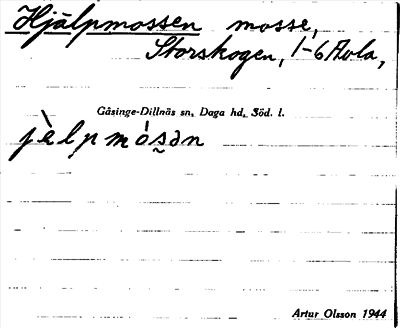 Hjälpmossen mosse,
Storskogen, 1-6 Avla,
Gåsinge-Dillnäs sn, Daga hd, Söd. l.
jèlpmósən
Artur Olsson 1944